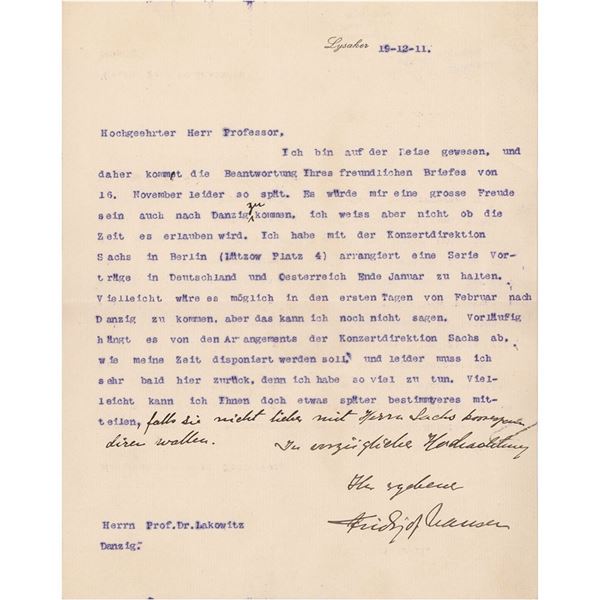 Lysaker 19-12-11.
Hochgeehrter Herr Professor,
Ich bin auf der Reise gewesen, und
daher kommpt die Beantwortung Ihres freundlichen Briefes von
16. November leider so spät. Es würde mir eine grosse Freude
sein auch nach Danzig zu kommen, ich weiss aber nicht ob die
Zeit es erlauben wird. Ich habe mit der Konzertdirektion
Sachs in Berlin (Lützow Platz 4) arrangiert eine Serie Vor-
träge in Deutschland und Oesterreich Ende Januar zu halten.
Vielleicht wäre es möglich in den ersten Tagen von Februar nach
Danzig zu kommen, aber das kann ich noch nicht sagen. Vorläufig
hängt es von den Arrangements der Konzertdirektion Sachs ab,
wie meine Zeit disponiert werden soll, und leider muss ich
sehr bald hier zurück, denn ich habe so viel zu tun. Viel-
leicht kann ich Ihnen doch etwas später bestimmyeres mit-
teilen, falls sie nicht lieber mit Herrn Sachs korrespon-
diren wollen. In vorzüglicher Hochachtung
Ihr ergebener
Fridtjof Nansen
Herrn Prof.Dr.Lakowitz
Danzig.